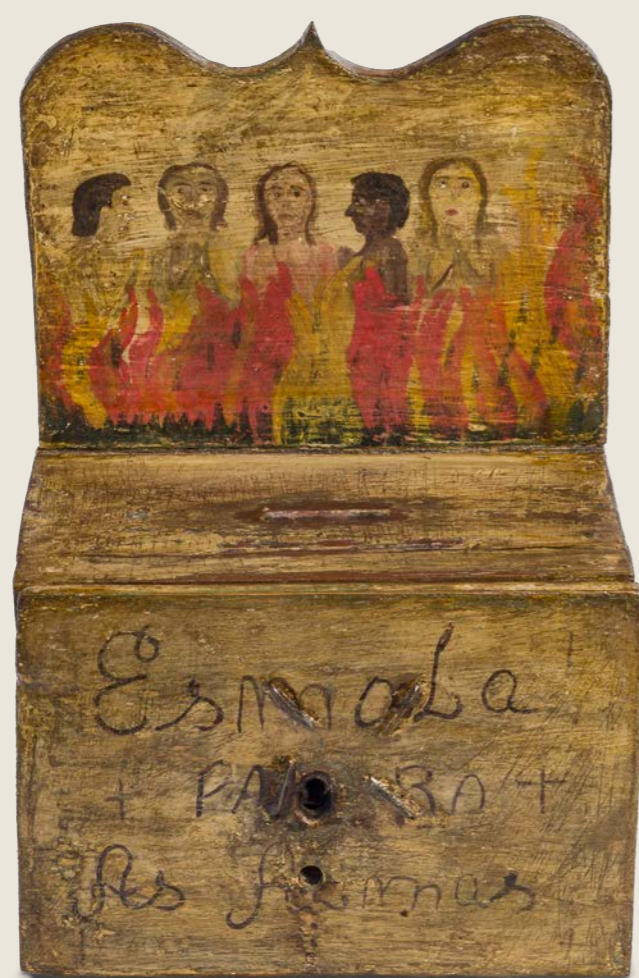 EsmoLa
+ PARA +
As Almas